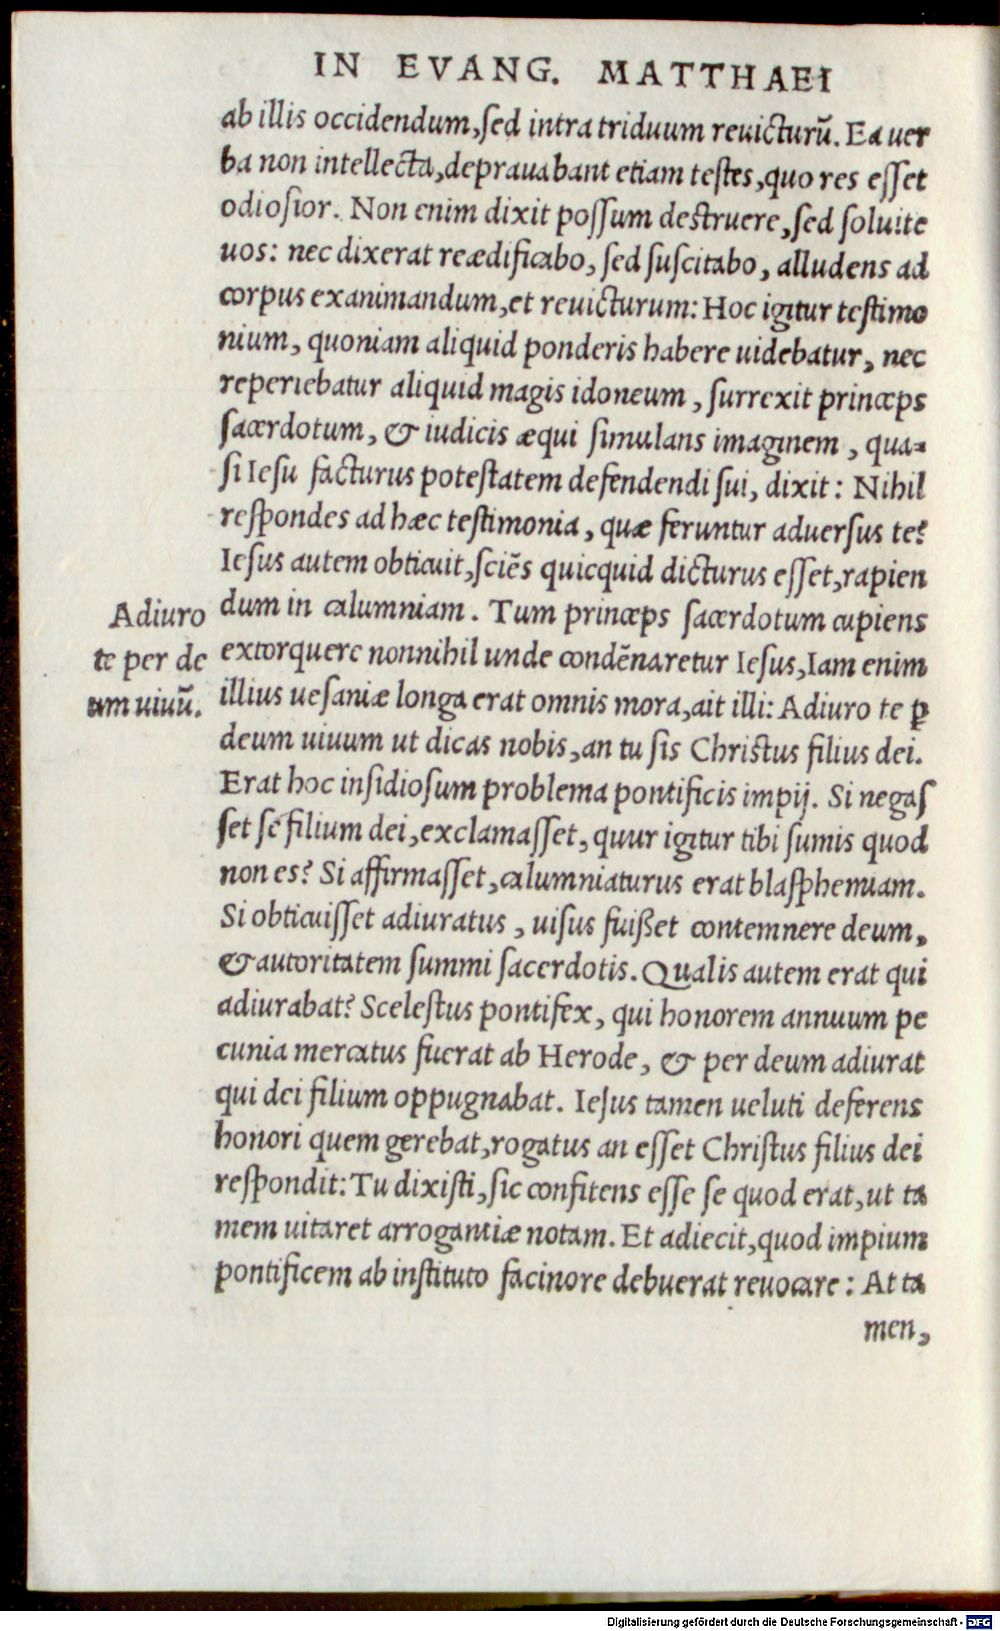 IN EVANG. MATTHAEI
ab illis occidendum,ſed intra triduum reuicturū. Ea uer
ba non intellecta,deprauabant etiam teſtes,quo res eſſet
odioſior. Non enim dixit poſſum deſtruere,ſed ſoluite
uos: nec dixerat reædificabo, ſed ſuſcitabo, alludens ad
corpus exanimandum,et reuicturum: Hoc igitur teſtimo
nium, quoniam aliquid ponderis habere uidebatur, nec
reperiebatur aliquid magis idoneum, ſurrexit princeps
ſacerdotum, & iudicis æqui ſimulans imaginem, qua-
ſi Ieſu facturus poteſtatem defendendi ſui, dixit: Nihil
reſpondes ad hæc teſtimonia, quæ feruntur aduerſus te?
Ieſus autem obticuit,ſciēs quicquid dicturus eſſet,rapien
dum in calumniam. Tum princeps ſacerdotum cupiens
Adiuro
te per de
um uiuū.
extorquere nonnihil unde condēnaretur Ieſus,Iam enim
illius ueſaniæ longa erat omnis mora,ait illi: Adiuro te ꝑ
deum uiuum ut dicas nobis,an tu ſis Chriſtus filius dei.
Erat hoc inſidioſum problema pontificis impij. Si negaſ
ſet ſe filium dei,exclamaſſet, quur igitur tibi ſumis quod
non es? Si affirmaſſet,calumniaturus erat blaſphemiam.
Si obticuiſſet adiuratus, uiſus fuißet contemnere deum,
& autoritatem ſummi ſacerdotis. Qualis autem erat qui
adiurabat? Sceleſtus pontifex, qui honorem annuum pe
cunia mercatus fuerat ab Herode, & per deum adiurat
qui dei filium oppugnabat. Ieſus tamen ueluti deferens
honori quem gerebat,rogatus an eſſet Chriſtus filius dei
reſpondit: Tu dixiſti,ſic confitens eſſe ſe quod erat,ut ta
mem uitaret arrogantiæ notam. Et adiecit,quod impium
pontificem ab inſtituto facinore debuerat reuocare: At ta
men,
Digitalisierung gefördert durch die Deutsche Forschungsgemeinschaft - DFG